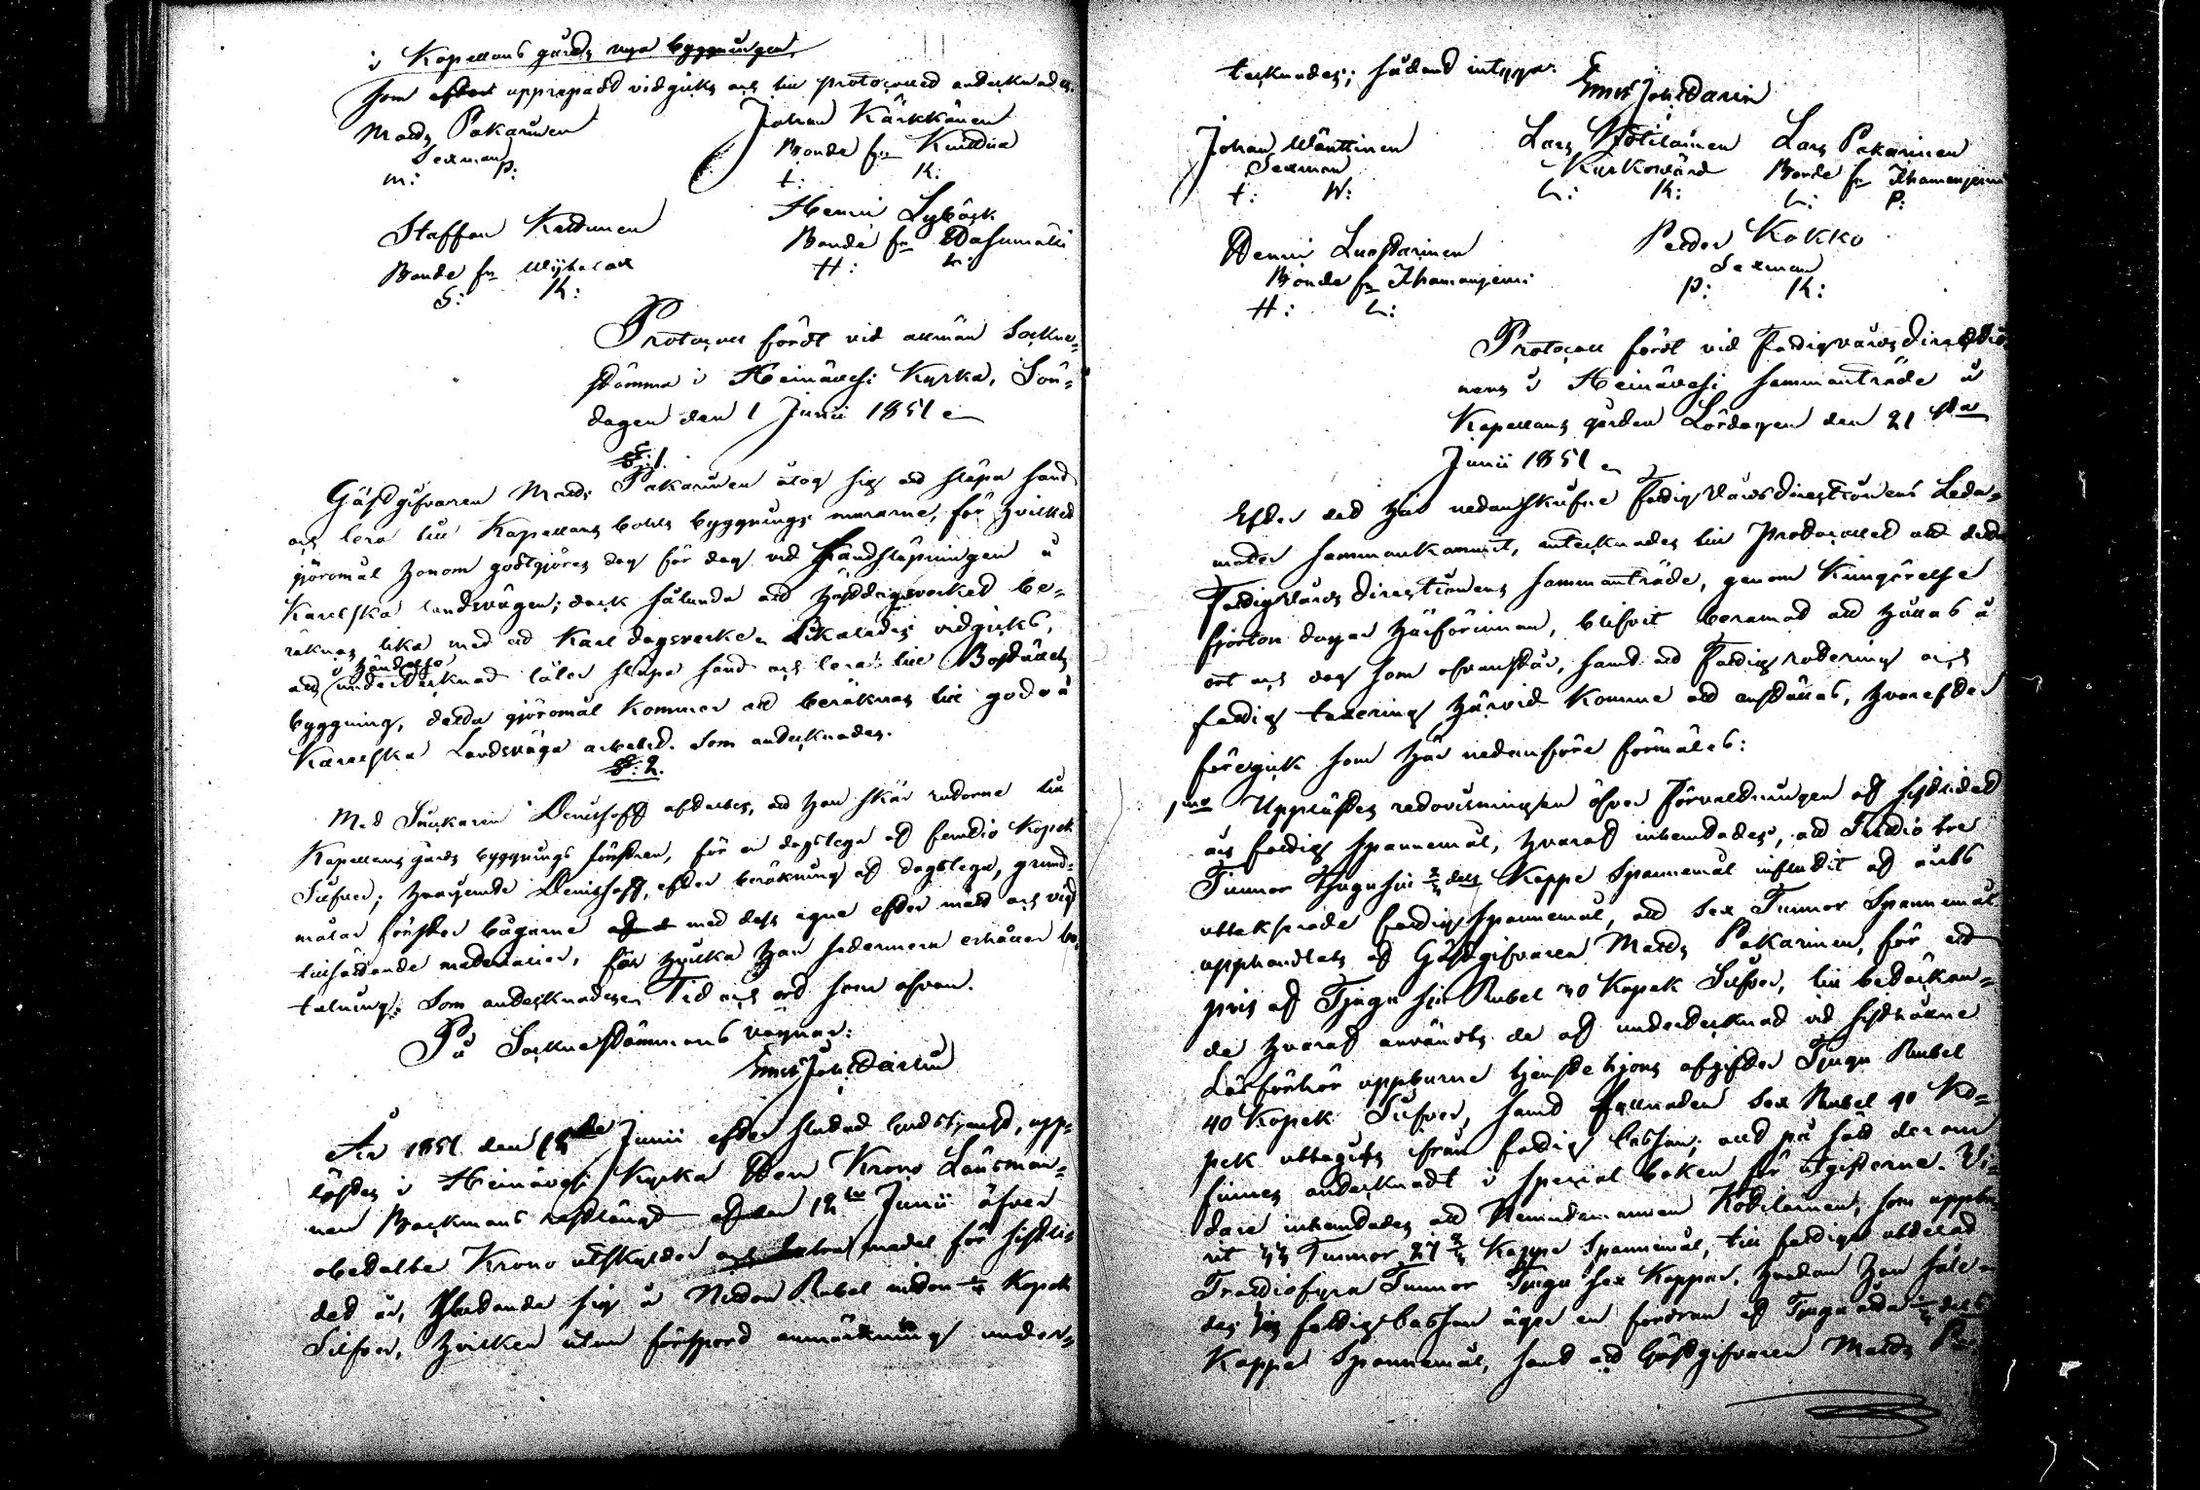 i Kapellans gårds nya byggningen
som efter upprepadt vidgicks och till protocollet antecknades,
Matts Pakarinen
Sexman
m: P:
Johan Kärkkänen
Bonde fr.
t: K:
Staffan Kettunen
Bonde fr.
S: K:
Henric Lybäck
Bonde fr. Pasumäki
H: L:
Protocoll fördt vid allmän Sockne-
stämma i Heinävesi Kyrka, Sön-
dagen den 1 Junii 1851.
§: 1.
Gästgifvaren Matts Pakarinen åtog sig att släpa sand
och lera till Kapellans bohls byggnings murarne, för hvilket
göromål honom godtgöres dag för dag vid sandsläpningen å
Karelska landsvägen; dock sålunda att hästdagsverket be-
räknas lika med ett Karl dagsverke. Likaledes vidgicks,
att i händelse undertecknad låter släpa sand och lera till Boställets
byggning, detta göromål kommer att beräknas till godo å
Karelska Landsväga arbetet. Som antecknades.
§: 2.
Med Snickaren Denishoff aftaltes, att han skär rutorne till
Kapellans gårds byggnings fönstren, för en dagslega af femtio Kopek
Silfver; hvarjemte Denishoff, efter beräkning af dagslega, grund-
målar fönster bågarne med dess egne efter mått och vigt
tillhörande materialier, för hvilka han sedermera erhåller be-
talning. Som antecknades. Tid och ort som ofvan.
På Sockne Stämmans vägnar:
År 1851 den 15de Junii efter slutad Gudstjenst, upp-
lästes i Heinävesi Kyrka Herr Krono Länsman-
nen Backmans restlängd af den 12te Junii öfver
obetalte Krono utskylder medel för sistli-
det år, stigande sig å Nitton Rubel nitton Kopek
Silfver, hvilken utan försport anmärkning under-
tecknades; sådant intygar.
Johan Wänttinen
Sexman
t: W:
Lars Kotilainen
Kyrkovärd
L: K:
Lars Pakarinen
Bonde fr. Ihamaniemi
L: P:
Henric Luostarinen
Bonde fr. Ihamaniemi
H: L:
Petter Kokko
Sexman
P: K:
Protocoll fördt vid Fattigvårds Directio-
nens i Heinävesi sammanträde å
Kapellans gården Lördagen den 21sta
Junii 1851.
Efter det här nedanskrifne Fattigvårdsdirectionens Leda-
möter sammankommit, antecknades till Protocollet att detta
Fattigvårds Directionens sammanträde, genom Kungörelse
fjorton dagar härförinnan, blifvit beramad att hållas å
ort och dag som ofvanstår, samt att Fattig rotering och
fattig taxering härvid komme att anställas, hvarefter
föregick som här nedanföre förmäles:
1mo Upplästes redovisningen öfver förvaltningen af sistlidet
års fattig spannemål, hvaraf inhemtades, att Trettio tre
Tunnor Tjugusju dels Kappe Spannemål influtit af årets
uttaxerade fattig spannemål, att Sex Tunnor Spannemål
upphandlats af Gästgifvaren Matts Pakarinen, för ett
pris af Tjugu sju Rubel 40 Kopek Silfver, till betäckan-
de hvaraf användts de af undertecknad vid sisthållne
Läsförhör uppburne tjenstehjons afgifter Tjugu Rubel
40 Kopek Silfver, samt fyllnaden Sex Rubel 40 Ko-
pek uttagits ifrån fattig cassan; allt på sätt derom
finnes antecknadt i special boken för utgifterne. Vi-
dare inhemtades att Nämndemannen Kotilainen, som uppbu-
rit 44 Tunnor 27 Kappe Spannemål, till fattige utdelat
Trettiofyra Tunnor Tjugu sex Kappar, hvadan han således
af fattigcassan äger en fordran af Tjuguåtta dels
Kappe Spannemål, samt att Gästgifvaren Matts Pa-